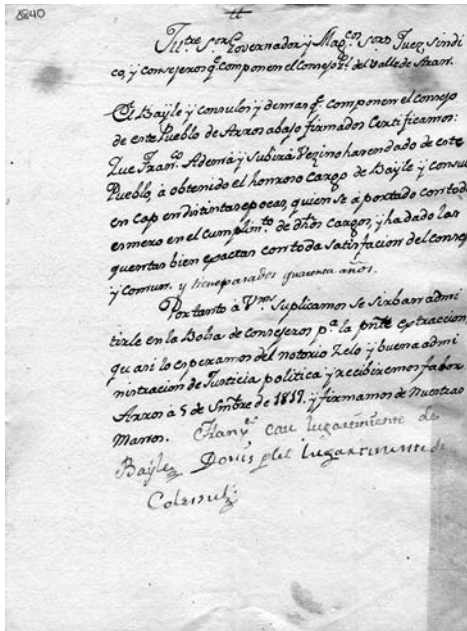 5840
Iltre Sor Governador y Magcos Sors Juez, Sindi
co, y consejeros q.e componen el Consejo Gl. del Valle de Aran.
El Bayle y consules y demas q.e componen el consejo
de este Pueblo de Arros abajo firmados Certificamos:
Que Franco. Ademá y Subirá Vezino hacendado de este
Pueblo, à obtenido el honroso Cargo de Bayle y consul
en Cap en distintas epocas, quien se à portado con toda
esmero en el Cumplimto. de dhos cargos, y ha dado las
quentas bien exactas con toda satisfacion del consejo
y Comun. y tiene pasados quarenta años.
Por tanto à Vms suplicamos se sirban admi
tirle en la Bolsa de consejeros pa. la pnte extraccion,
qe asi lo esperamos del notorio Zelo y buena admi
nistracion de Justicia politica y recibiremos fabor
Arros à 5 de Smbre de 1817. y firmamos de Nuestras
Manos. Franco cau lugartiniente de
Bayle lugartiniente de
Consul